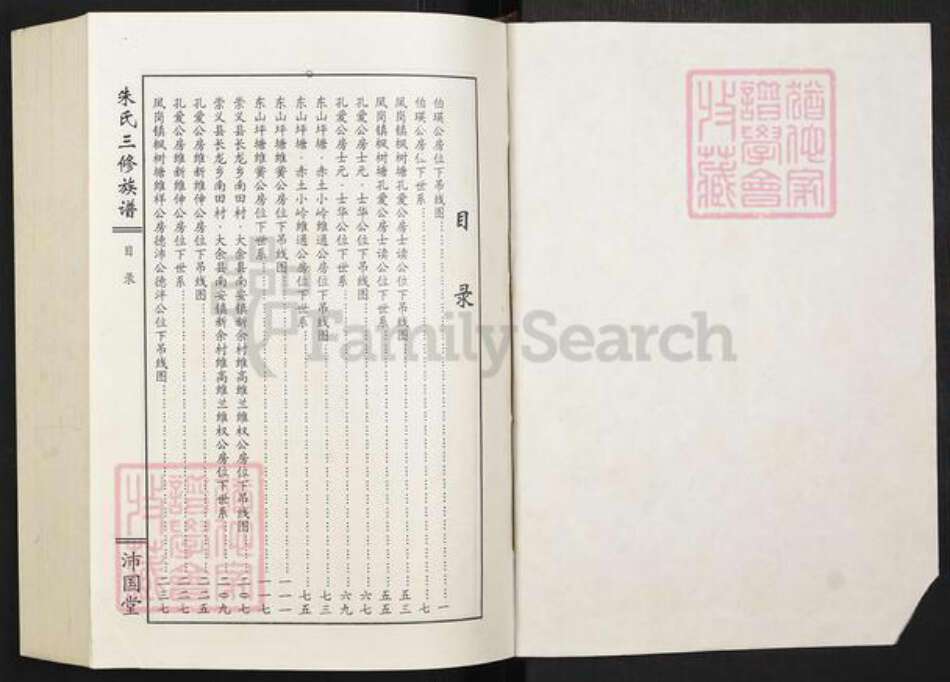 目录
伯瑛公房位下吊线图……一
伯瑛公房位下世系……七
凤岗镇枫树塘孔爱公房士读公位下吊线图……五三
凤岗镇枫树塘孔爱公房士读公位下世系……五五
孔爱公房士元·士华公位下吊线图……六七
孔爱公房士元·士华公位下世系……六九
东山坪塘·赤土小岭维通公房位下吊线图……七三
东山坪塘·赤土小岭维通公房位下世系……七五
东山坪塘维簧公房位下吊线图……一一一
东山坪塘维簧公房位下世系……一一七
崇义县长龙乡南田村·大余县南安镇新余村维高维兰维权公房位下吊线图……二〇七
崇义县长龙乡南田村·大余县南安镇新余村维高维兰维权公房位下世系……二〇九
孔爱公房维新维伸公房位下吊线图……二二五
孔爱公房维新维伸公房位下世系……二二七
凤岗镇枫树塘维祥公房德沛公德泮公位下吊线图……二三七
朱氏三修族谱
目录
沛国堂
FamilySearch
猶他家譜學會收藏
猶他家譜學會收藏